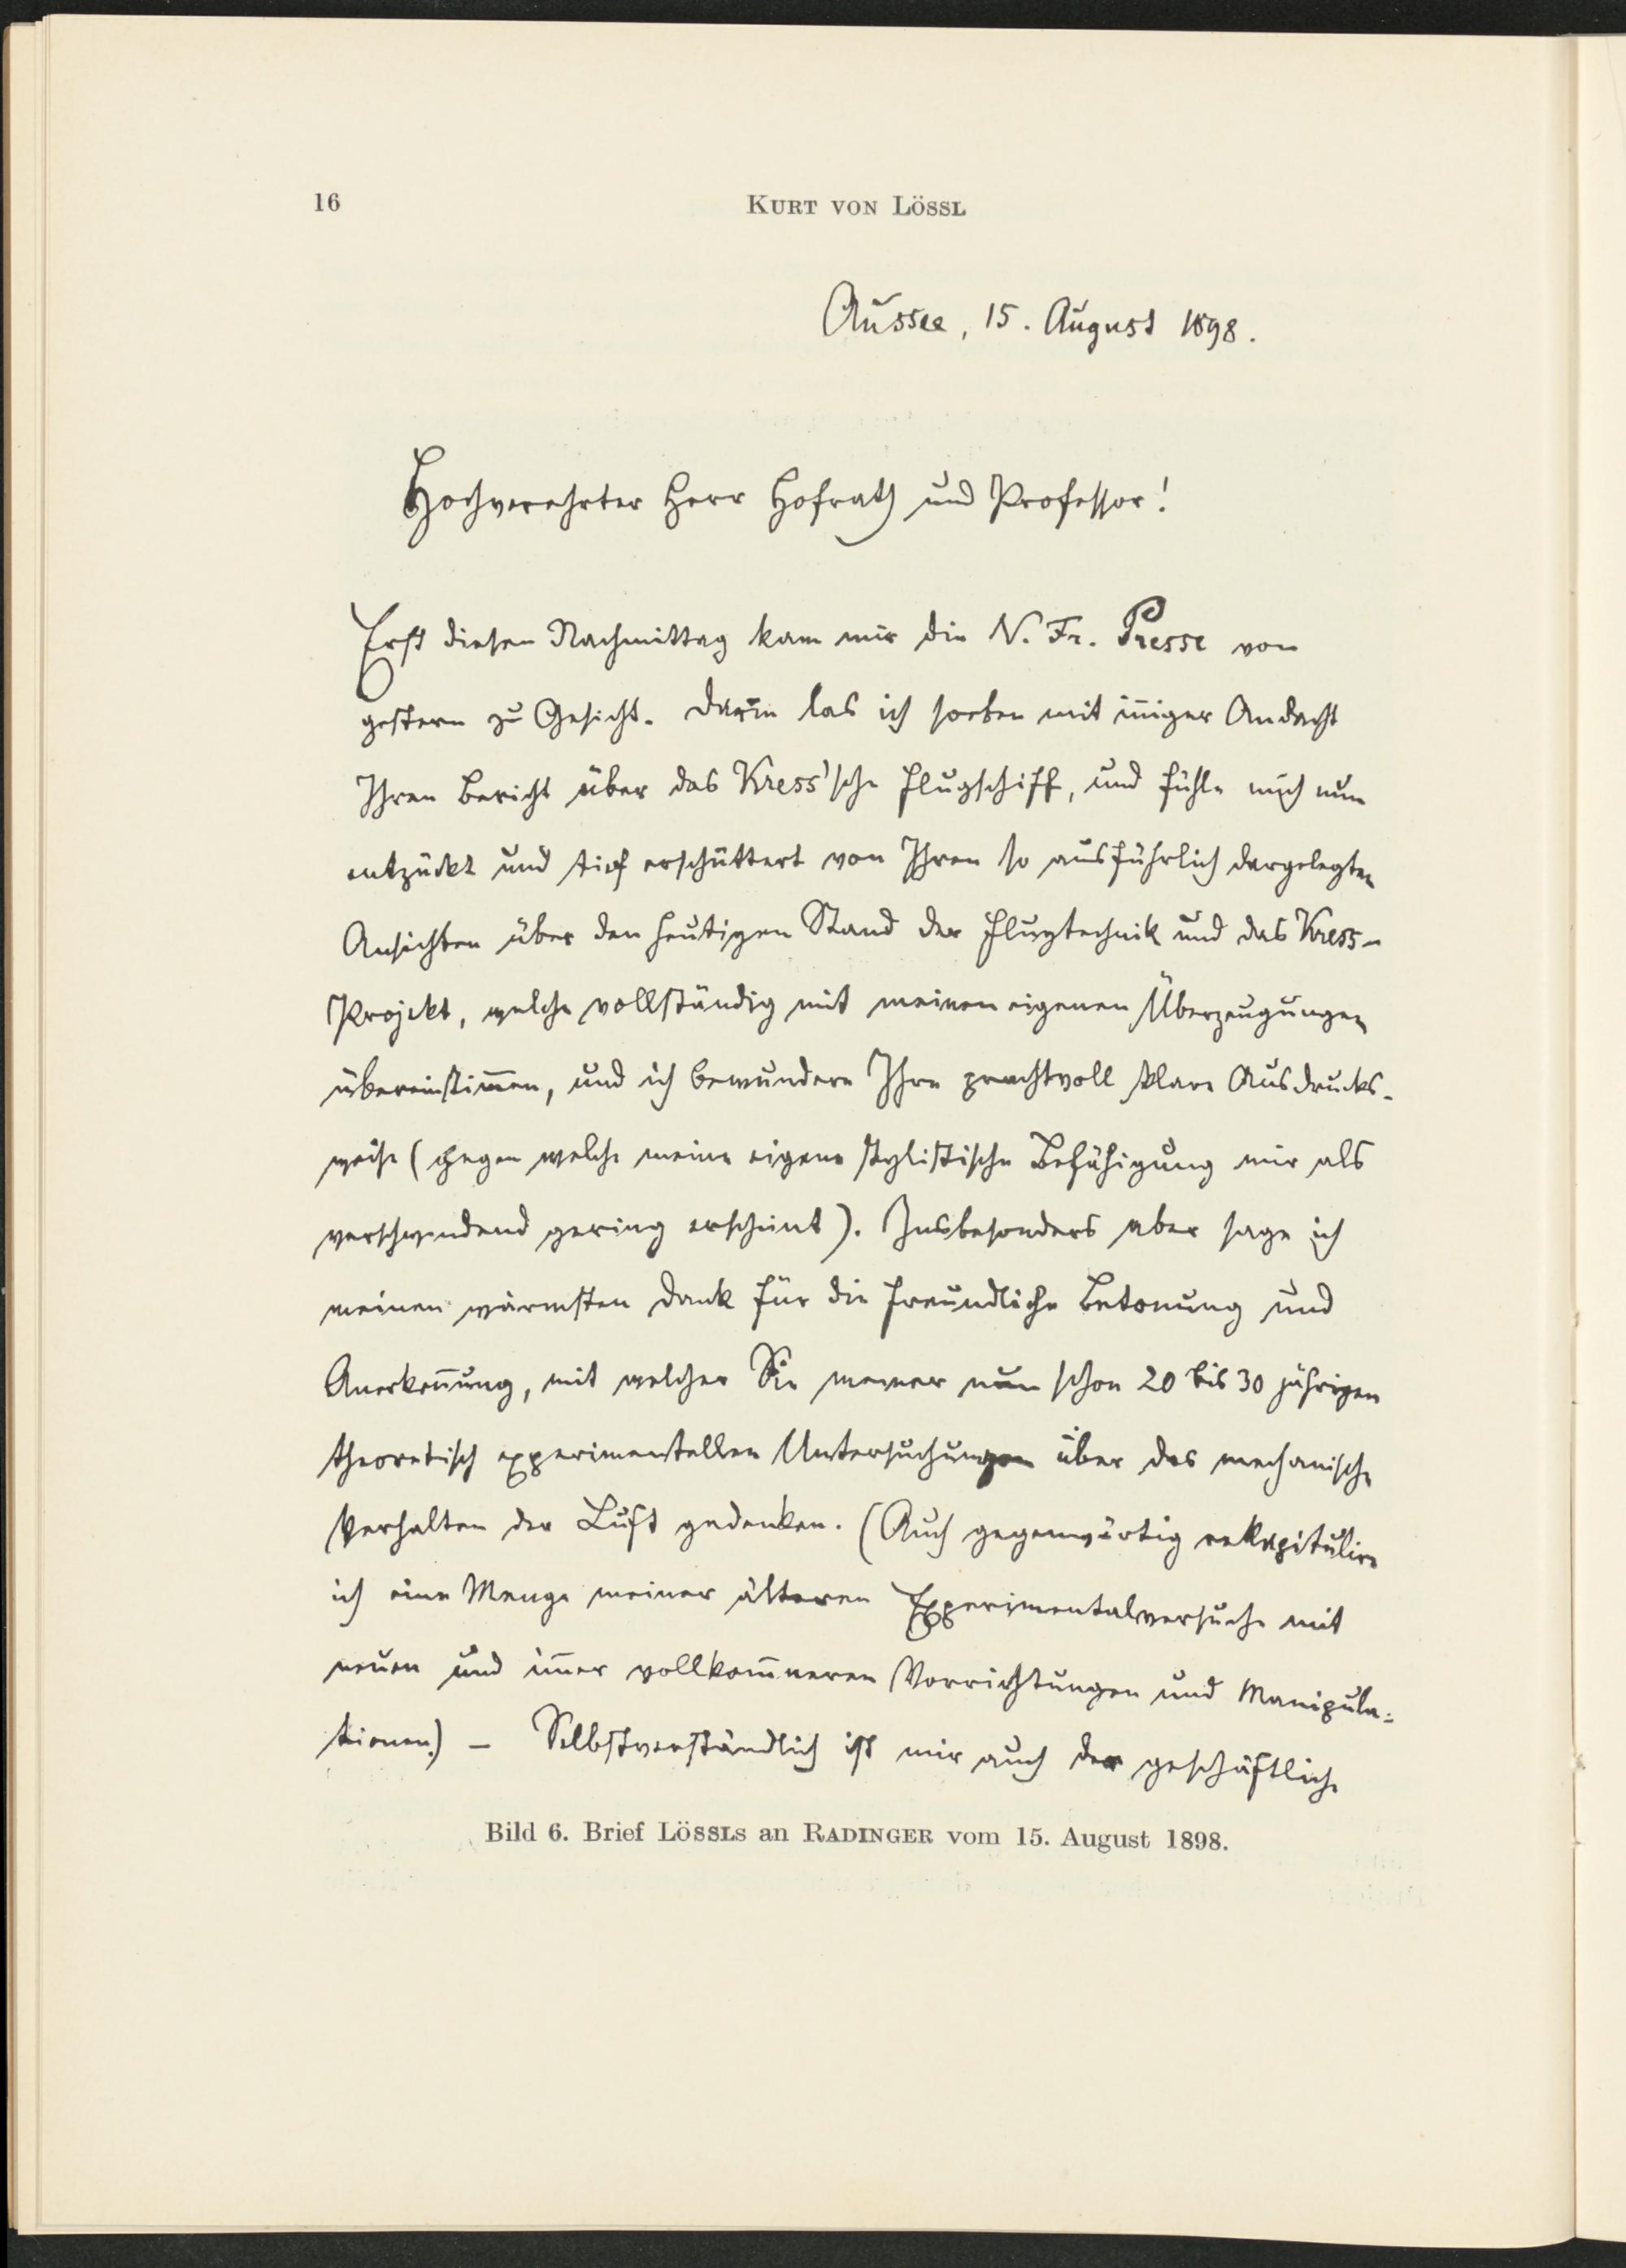 16
KURT VON LÖSSL
Aussee, 15. August 1898.
Hochverehrter Herr Hofrath und Professor!
Erst diesen Nachmittag kam mir die N. Fr. Presse von
gestern zu Gesicht. Darin las ich soeben mit inniger Andacht
Ihren Bericht über das Kress'sche Flugschiff, und fühle mich nun
entzückt und tief erschüttert von Ihren so ausführlich dargelegten
Ansichten über den heutigen Stand der Flugtechnik und das Kress-
Projekt, welche vollständig mit meinen eigenen Überzeugungen
übereinstimmen, und ich bewundere Ihre prachtvoll klare Ausdrucks-
weise (gegen welche meine eigene stylistische Befähigung mir als
verschwindend gering erscheint). Insbesonders aber sage ich
meinen wärmsten Dank für die freundliche Betonung und
Anerkennung, mit welcher Sie meiner nun schon 20 bis 30 jährigen
theoretisch experimentellen Untersuchungen über das mechanische
Verhalten der Luft gedenken. (Auch gegenwärtig rekapitulire
ich eine Menge meiner älteren Experimentalversuche mit
neuen und immer vollkommneren Vorrichtungen und Manipula-
tionen.) – Selbstverständlich ist mir auch der geschäftliche
Bild 6. Brief LÖSSLs an RADINGER vom 15. August 1898.